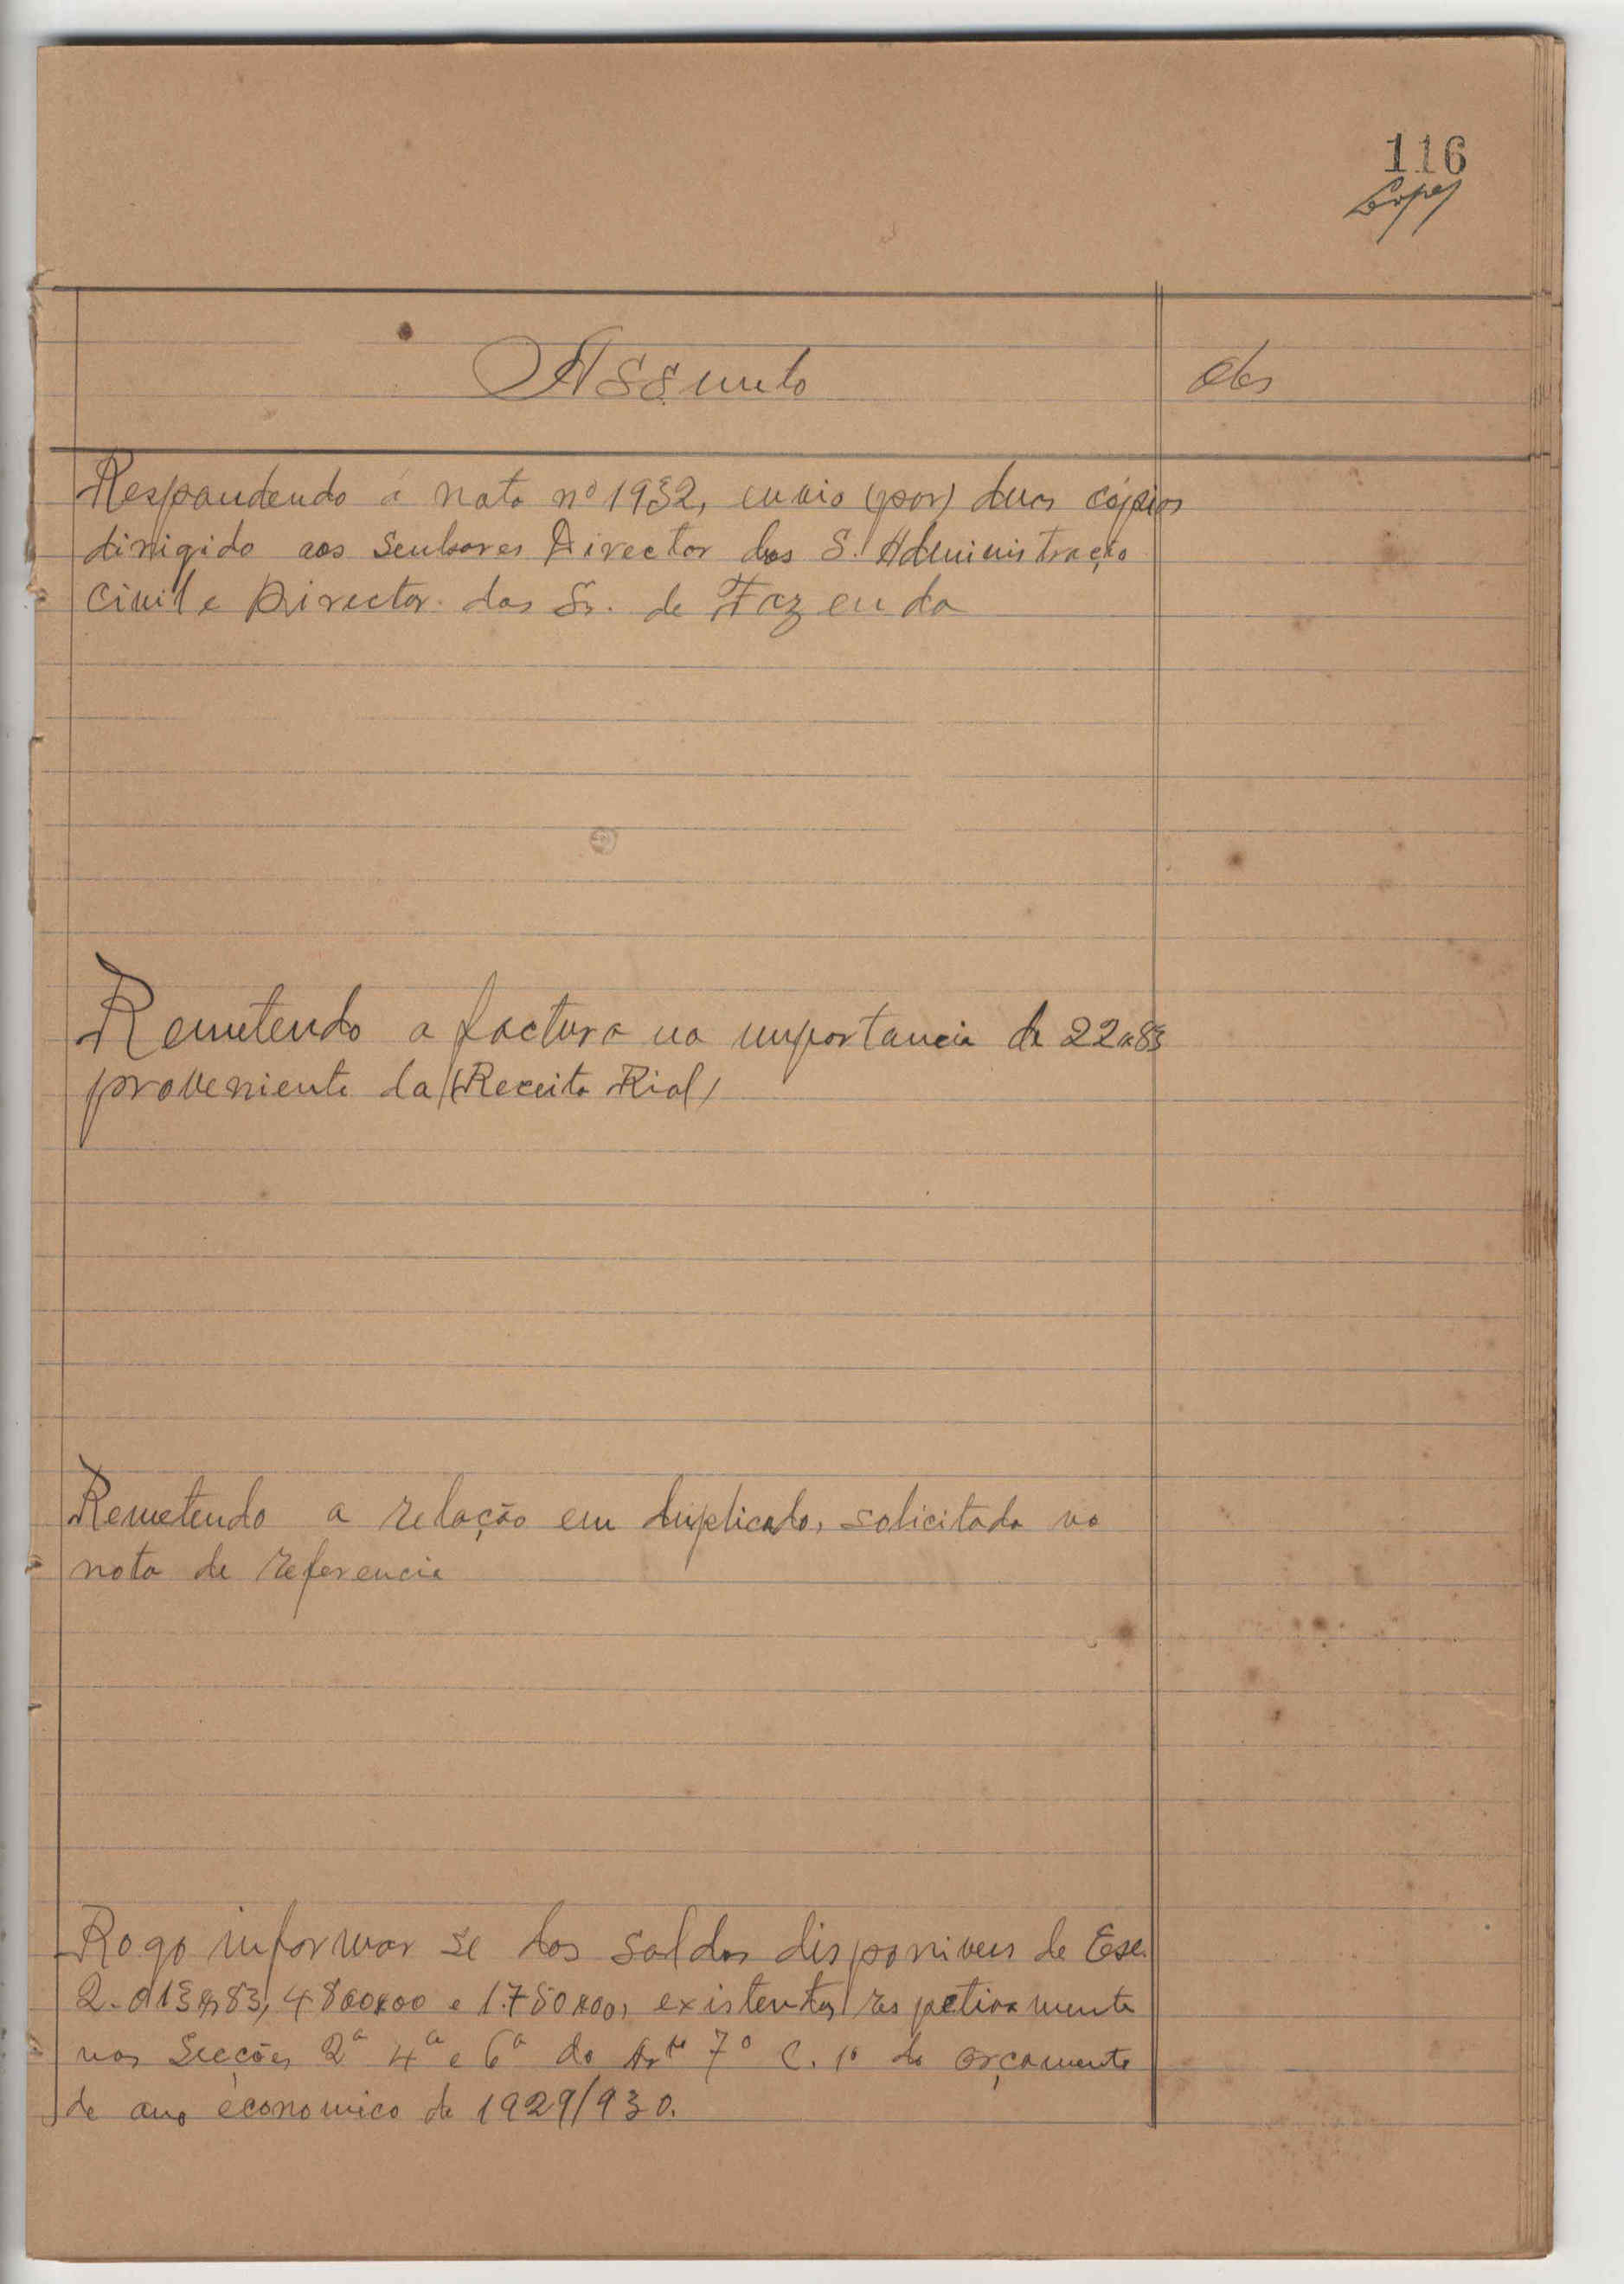 116
Lopes
Assunto
Obs
Respondendo á nota nº 1932, envio (por) duas cópias
dirigido aos Senhores Director dos S. Administração
Civil e Director dos Ss. de Fazenda
Remetendo a factura na importancia de 22$83
proveniente da (Receita Rial)
Remetendo a relação em duplicado, solicitada na
nota de referencia
Rogo informar se dos saldos disponiveis de Esc.
2.013$83, 4800$00 e 1.750$00, existentes respetivamente
nas Secções 2ª 4ª e 6ª do Artº 7º C. 1º do orçamento
de ano economico de 1929/930.